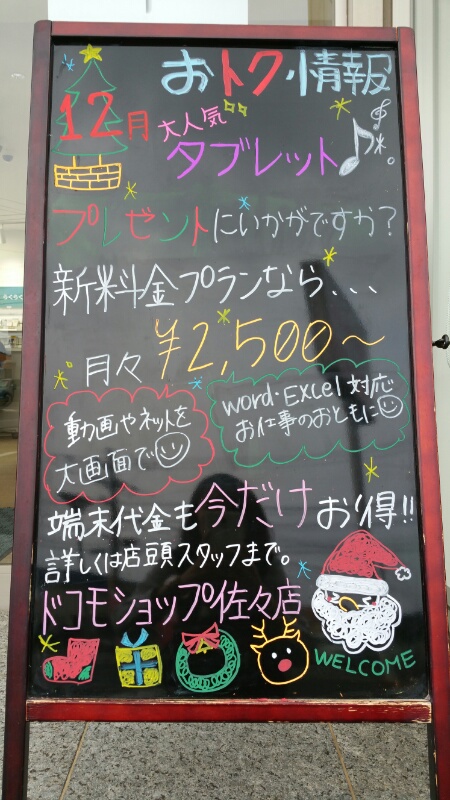 おトク情報
12月
大人気
タブレット
プレゼントにいかがですか?
新料金プランなら、、、
月々 ¥2,500〜
動画やネットを
大画面で
word・EXcel 対応
お仕事のおともに
端末代金も今だけお得!!
詳しくは店頭スタッフまで。
ドコモショップ佐々店
WELCOME
らくらく